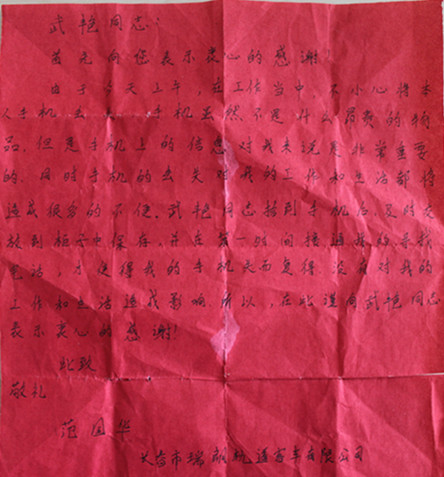 武艳同志:
首先向您表示衷心的感谢!
由于今天上午,在工作当中,不小心将本
人手机丢失,手机虽然不是什么贵重的物
品,但是手机上的信息对我来说是非常重要
的.同时手机的丢失对我的工作和生活都将
造成很多的不便.武艳同志拾到手机后,及时交
放到柜子中保存,并在第一时间接通我的寻找
电话,才使得我的手机失而复得.没有对我的
工作和生活造成影响.所以,在此送向武艳同志
表示衷心的感谢!
此致
敬礼
范国华
长春市瑞 轨道客车有限公司